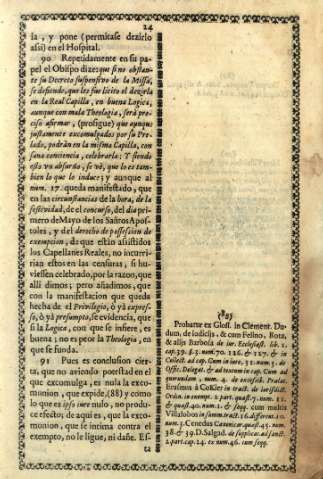 24
la, y pone (permitase dezirlo
assi) en el Hospital.
90 Repetidamente en su pa-
pel el Obispo dize: que si no obstan-
te su Decreto suspensivo de la Missa,
se defiende, que les fue licito el dezirla
en la Real Capilla, en buena Logica,
aunque con mala Theologia, serà pre-
ciso afirmar, (prosigue) que aunque
justamente excomulgados por su Pre-
lado, podràn en la misma Capilla, con
sana conciencia, celebrarla: Y siendo
esto tan absurdo, se vè, que lo es tam-
bien lo que lo induce; y aunque al
num. 17. queda manifestado, que
en las circunstancias de la hora, de la
festividad, de el concurso, del dia pri-
mero de Mayo de los Santos Apos-
toles, y del derecho de possession de
exempcion, de que estàn asistidos
los Capellanes Reales, no incurri-
rian estos en las censuras, si hu-
viessen celebrado, por la razon, que
alli dimos; pero añadimos, que
con la manifestacion que queda
hecha de el Privilegio, ò yà expres-
so, ò yà presumpto, se evidencia, que
si la Logica, con que se infiere, es
buena; no es peor la Theologia, en
que se funda.
91 Pues es conclusion cier-
ta, que no aviendo potestad en el
que excomulga, es nula la exco-
munion, que expide, (88) y como
lo que es ipso iure nulo, no produ-
ce efecto; de aqui es, que la exco-
munion, que se intima contra el
exempto, no le ligue, ni dañe. Es-
ta
(88)
Probatur ex Gloss. in Clement. Du-
dum, de iudicijs, & cum Felino, Rota,
& alijs Barbosa de iur. Ecclesiast. lib. 1.
cap. 39. §. 3. num. 70. 126. & 127. & in
Collect. ad cap. Cum in iure, 31. num. 3. de
Offic. Delegat. & ad textum in cap. Cum ad
quorumdam, num. 4. de excessib. Prælat.
Erasmus à Cokier in tract. de iurisdict.
Ordin. in exempt. 2. part. quæst. 7. num. 12.
& quæst. 40. num. 1. & seqq. cum multis
Villalobos in summ. tract. 16. different. 10.
num. 3. Cenedus Canonic. quæst. 45. num.
38. & 39. D. Salgad. de supplicat. ad sanct.
2. part. cap. 24. ex num. 46. cum seqq.